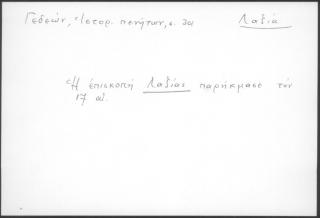 Γεδεών, Ἱστορ. πενήτων, σ. 30
Λαδιά
Ἡ ἐπισκοπή Λαδίας παρήκμασε τόν
17 αἰ.